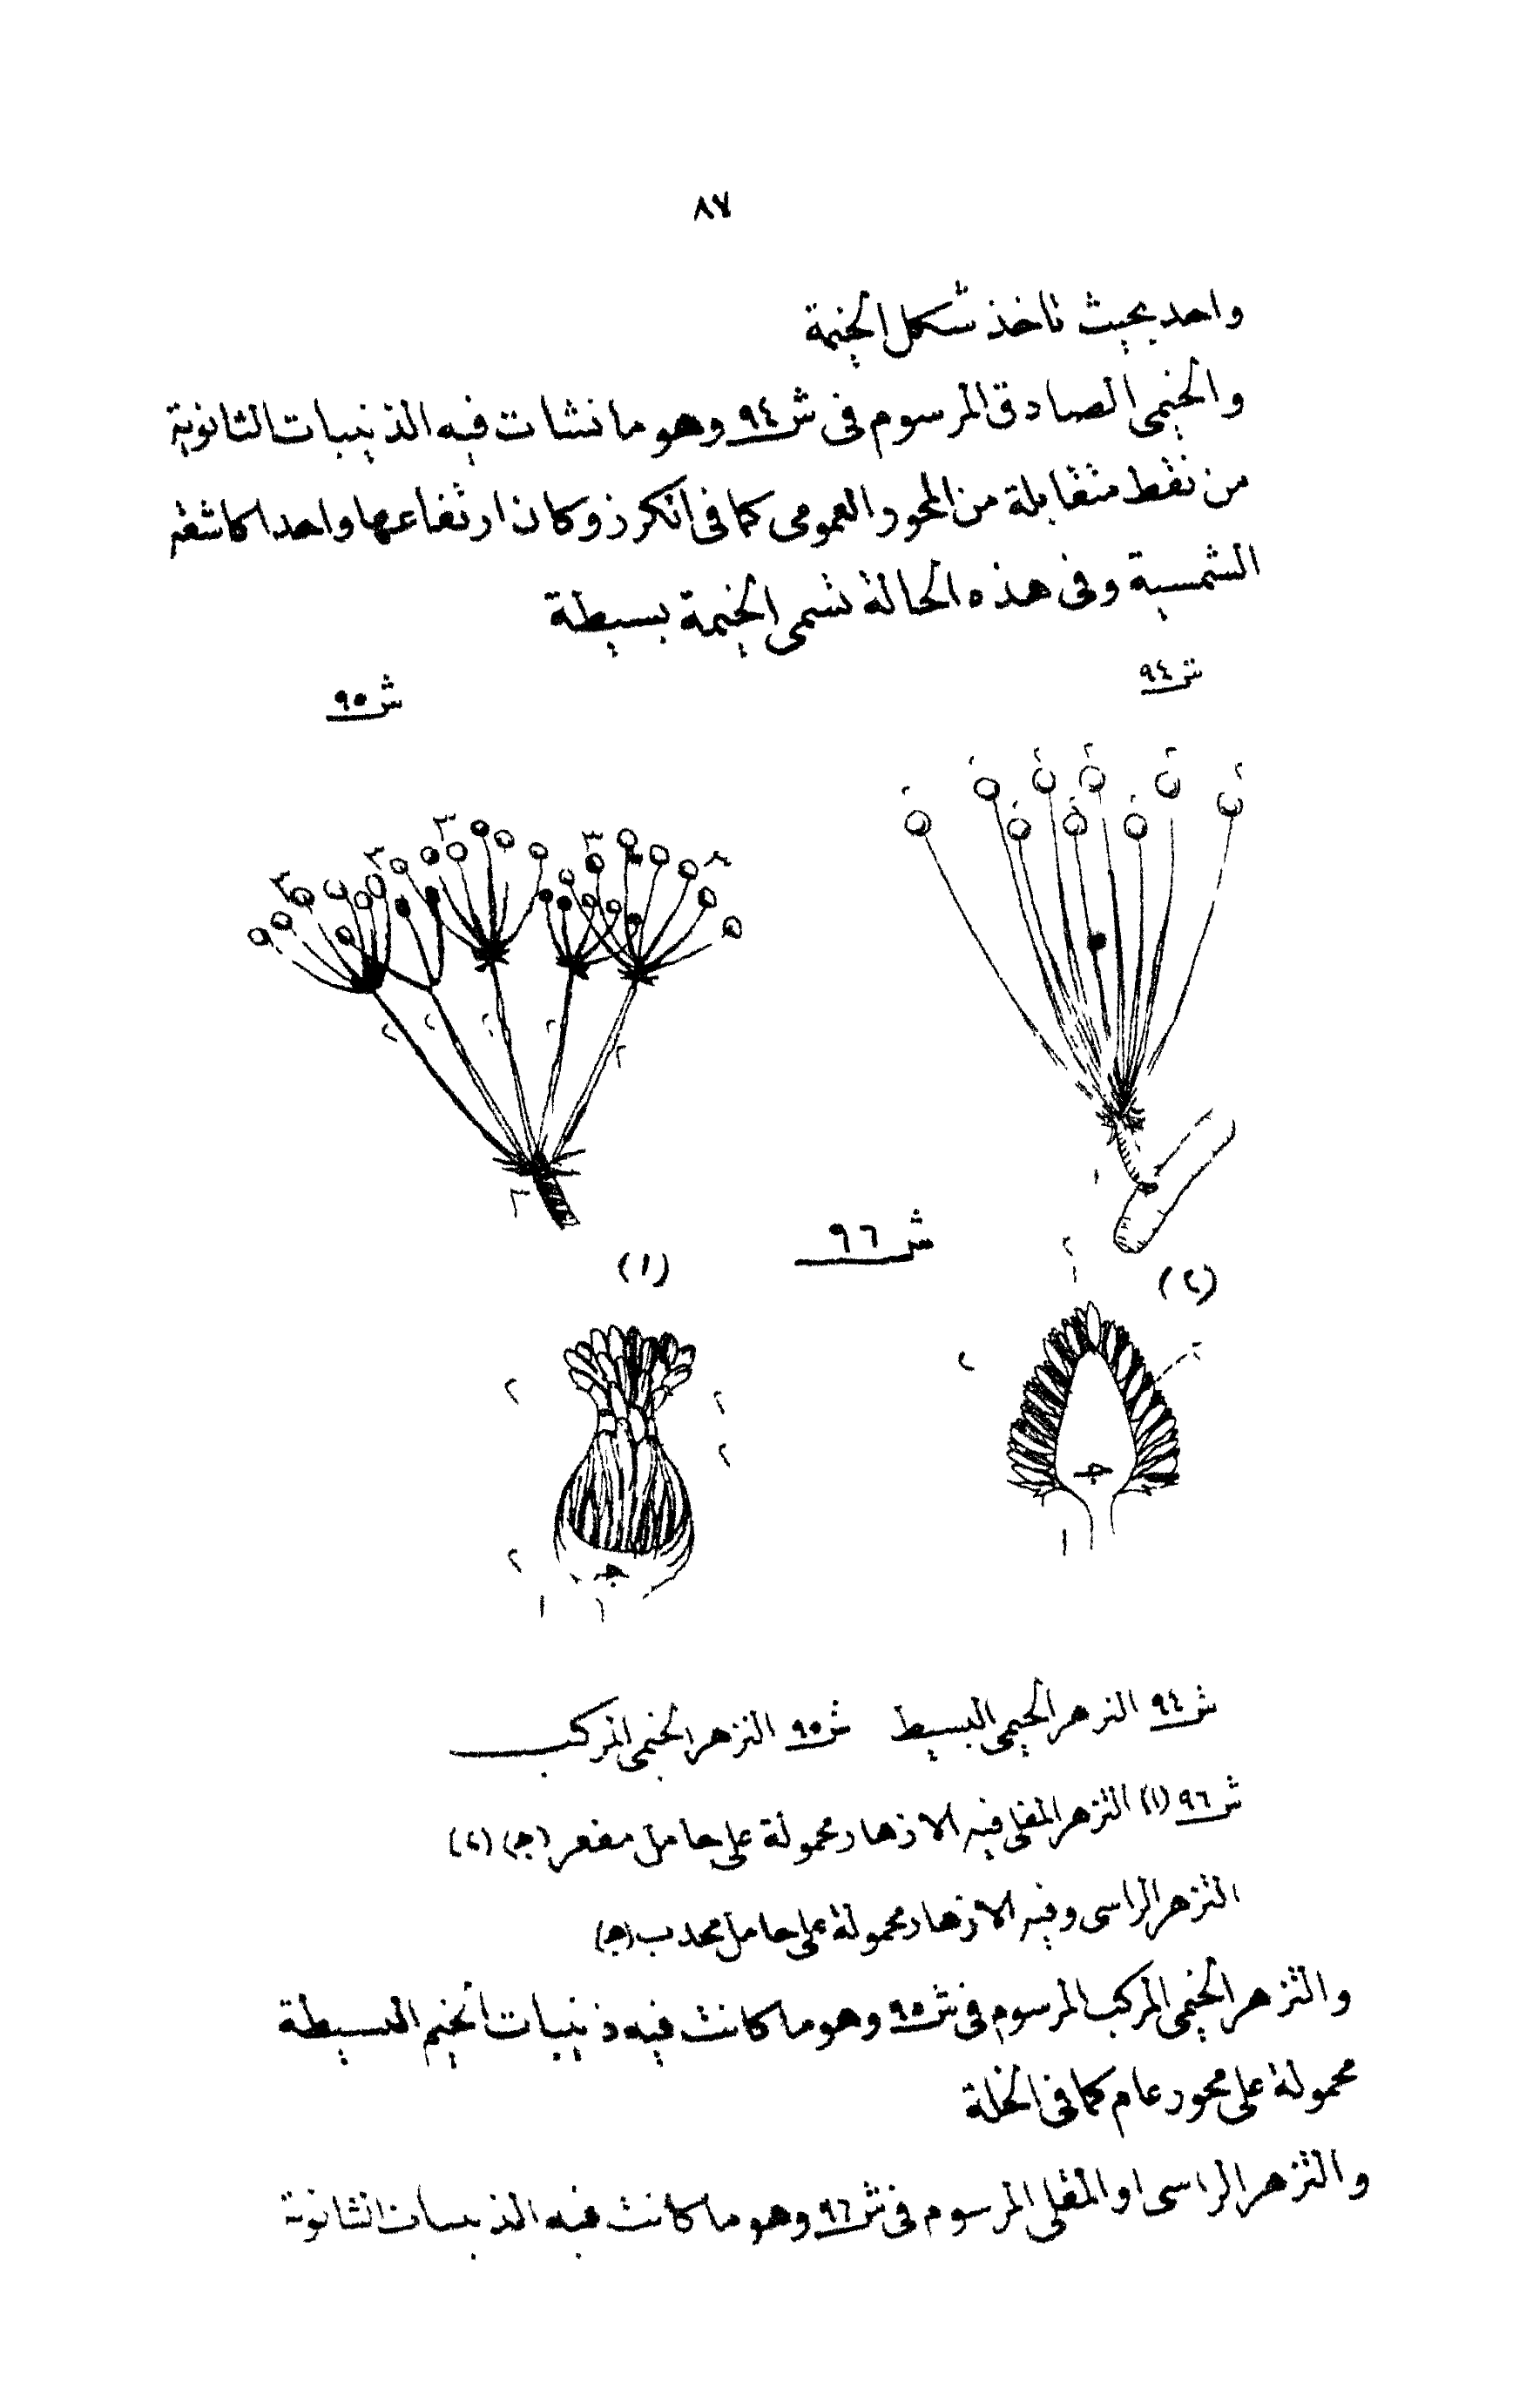 ٨٧
واحد بحيث تاخذ شكل الخيمة
والخيمى الصادق المرسوم فى ش ٩٤ وهو ما نشات فيه الذنيبات الثانوية
من نقط متقابلة من المحور العمومى كما فى الكرز وكان ارتفاعها واحدا كاشعة
الشمسية وفى هذه الحالة تسمى الخيمة بسيطة
ش ٩٤
ش ٩٥
ش ٩٦
(٢)
(١)
ش ٩٤ التزهر الخيمى البسيط ش ٩٥ التزهر الخيمى المركب
ش ٩٦ (١) التزهر المقلى فيه الازهار محمولة على حامل مقعر (جـ) (٢)
التزهر الراسى وفيه الازهار محمولة على حامل محدب (جـ)
والتزهر الخيمى المركب المرسوم فى ش ٩٥ وهو ما كانت فيه ذنيبات الخيم البسيطة
محمولة على محور عام كما فى الخلة
والتزهر الراسى او المقلى المرسوم فى ش ٩٦ وهو ما كانت فيه الذنيبات الثانوية